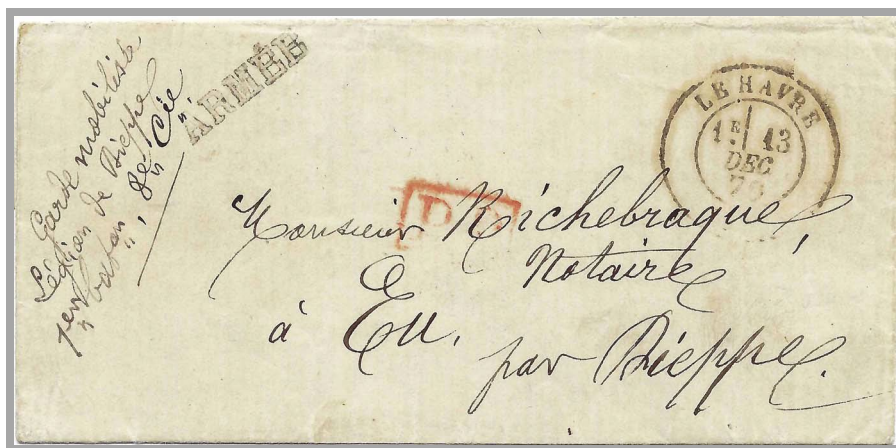 Garde mobilisée
Légion de Dieppe
1er baton, 8e Cie
ARMÉE
LE HAVRE
1E 13
DEC
70
P.P.
Monsieur Richebraque,
Notaire
à Eu.
par Dieppe.